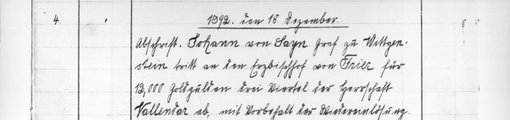 4.
1392. den 18. Dezember.
Abschrift. Johann von Sayn Graf zu Wittgen-
stein tritt an den Erzbischhof von Trier für
12,000 Goldgulden drei Viertel der Herrschaft
Vallendar ab, mit Vorbehalt der Wiedereinlösung.